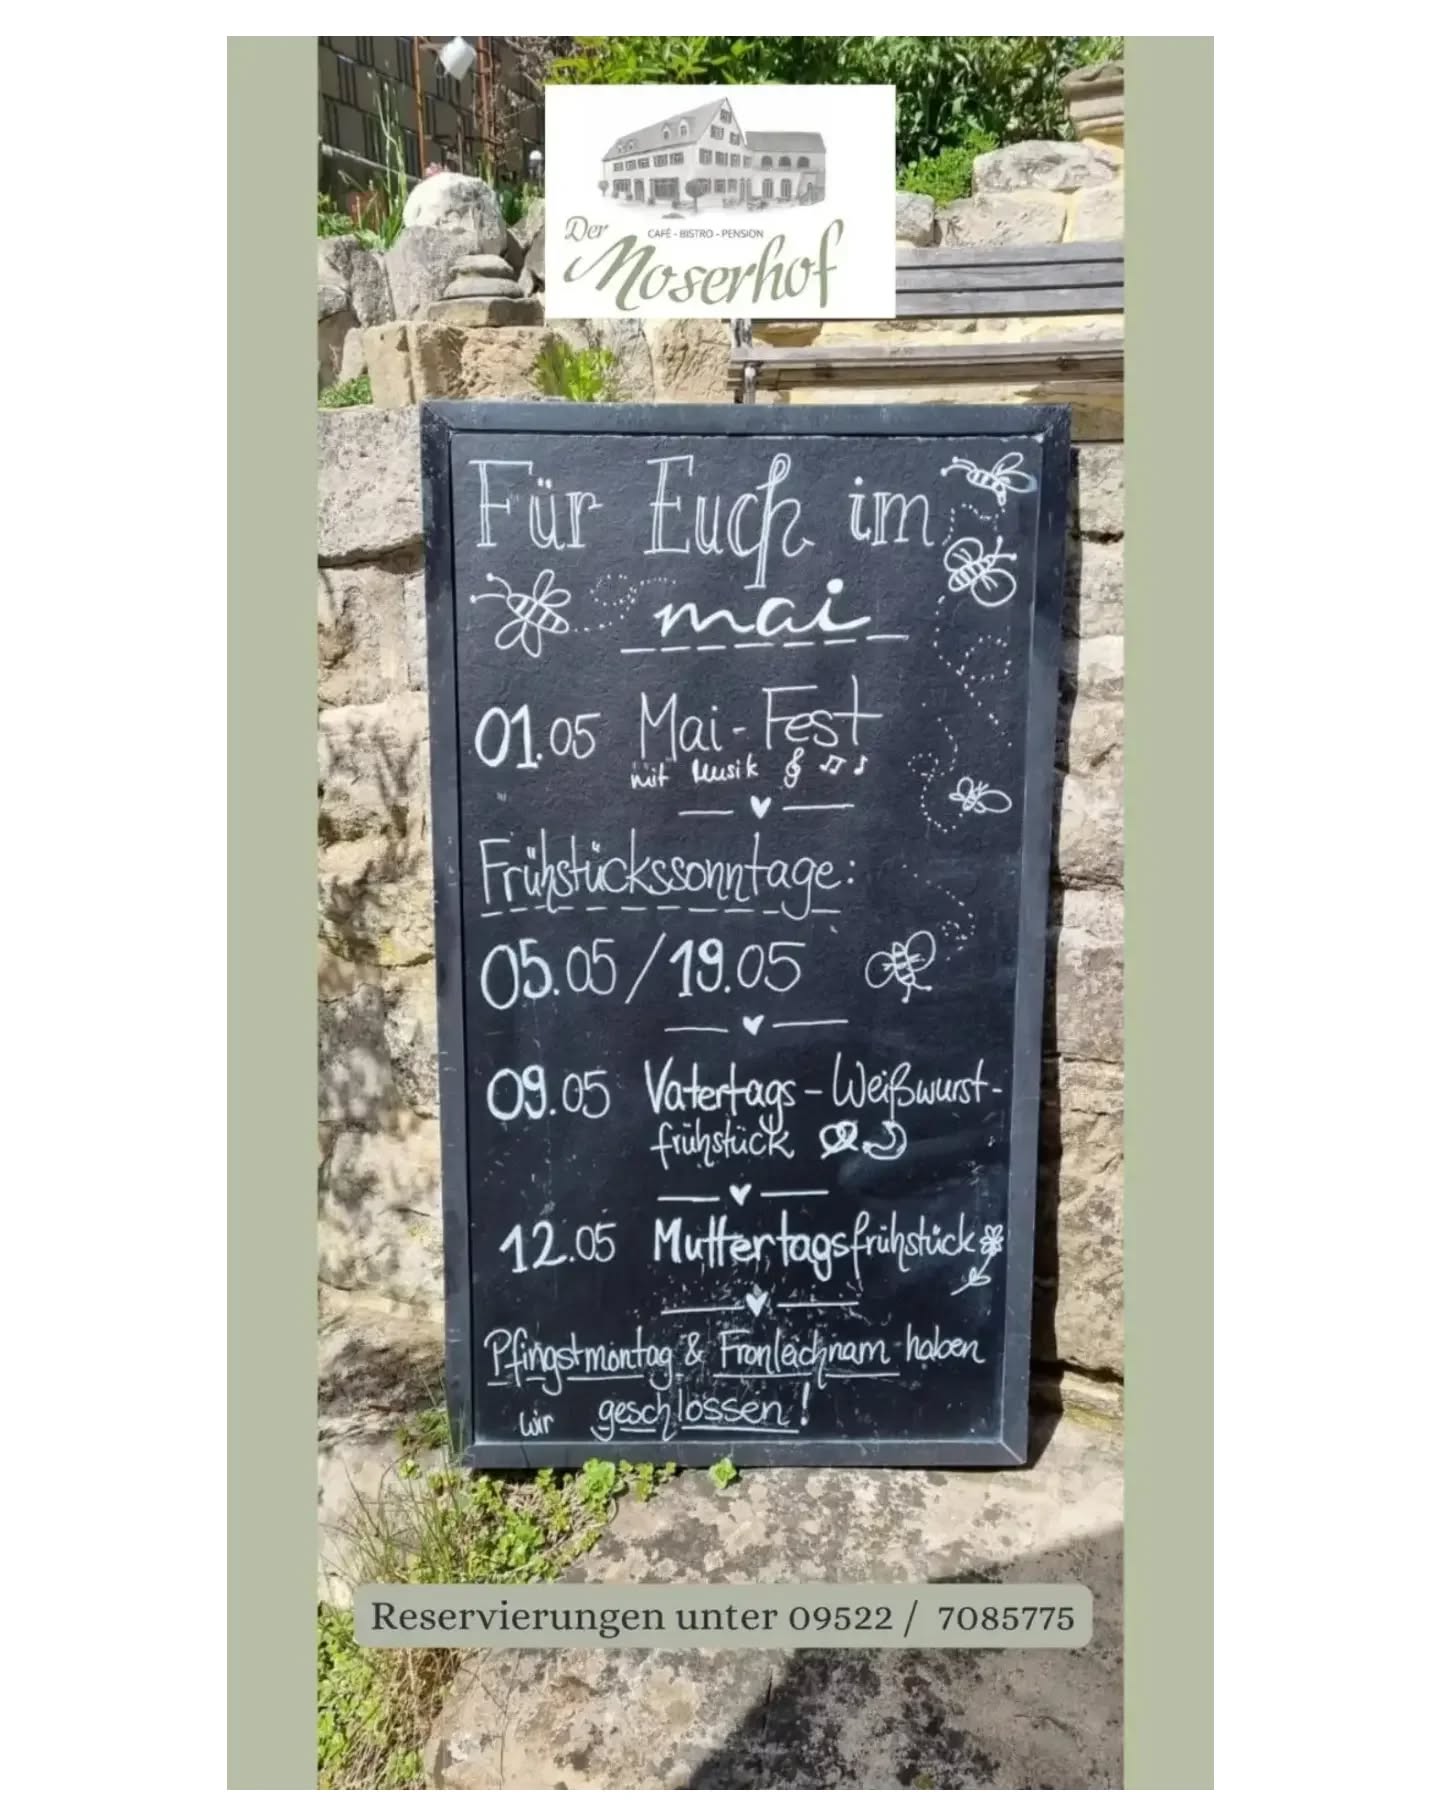 Der CAFÉ - BISTRO - PENSION
Moserhof
Für Euch im
mai
01.05 Mai-Fest
mit Musik
Frühstückssonntage:
05.05/19.05
09.05 Vatertags-Weißwurst-
frühstück
12.05 Muttertagsfrühstück
Pfingstmontag & Fronleichnam haben
wir geschlossen!
Reservierungen unter 09522 / 7085775